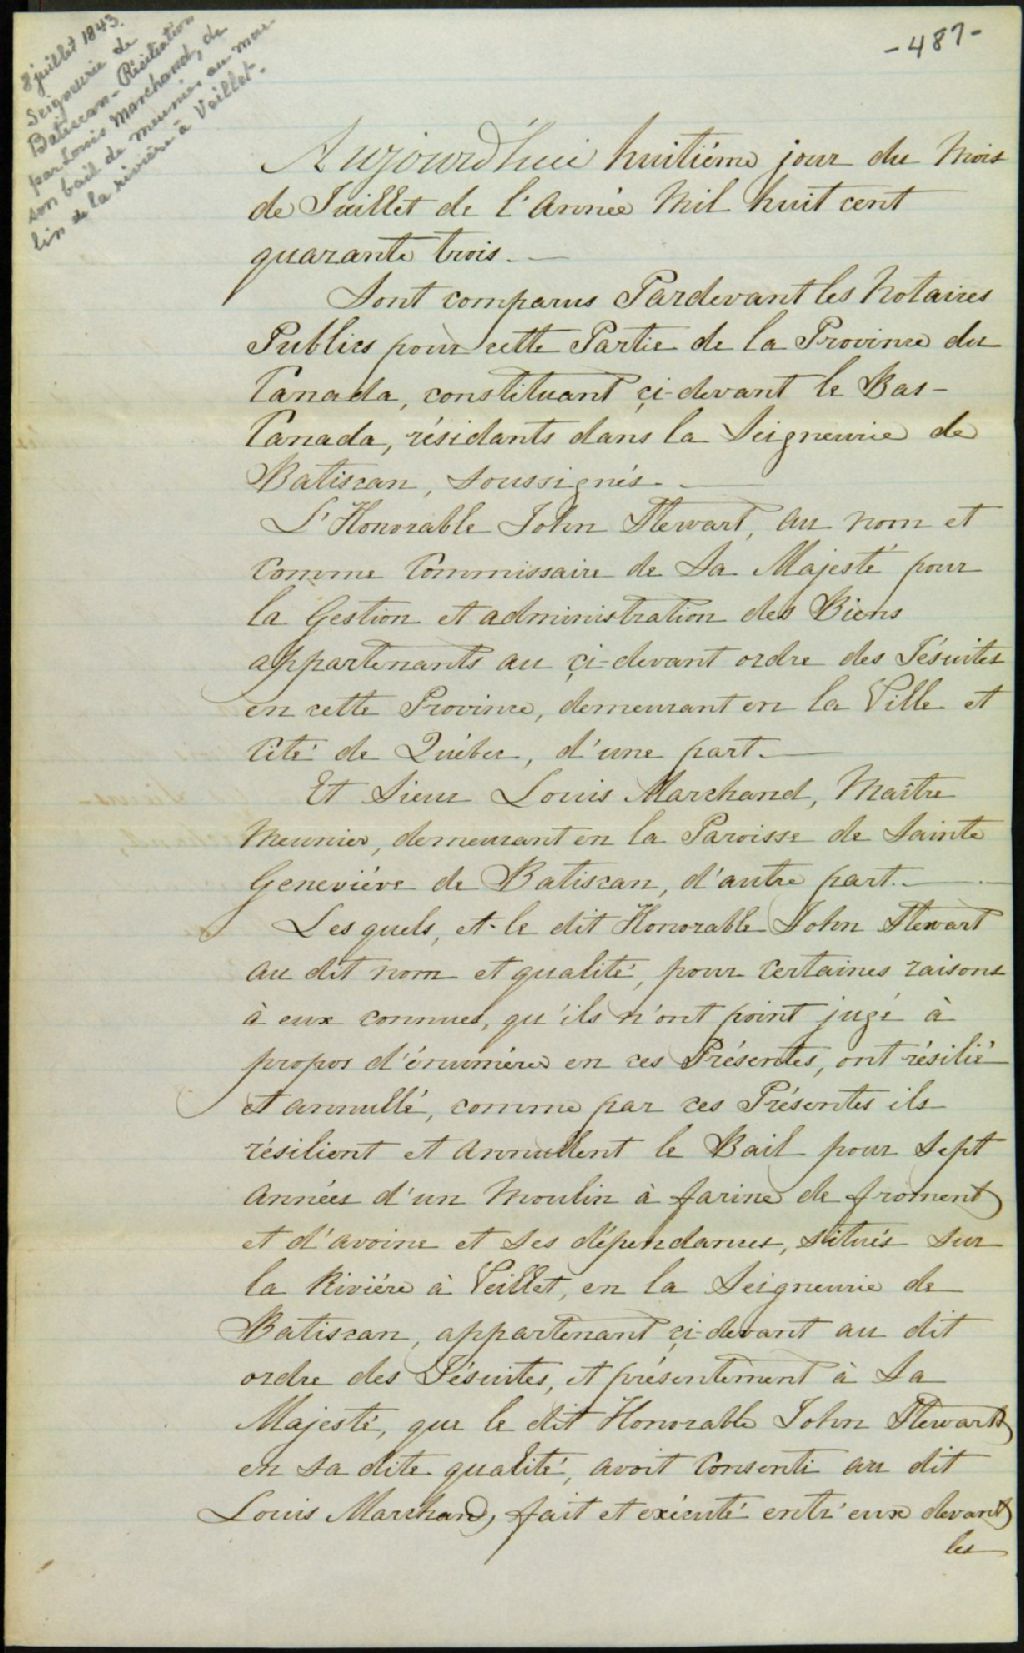 -487-
8 juillet 1843.
Seigneurie de
Batiscan - Résiliation
par Louis Marchand, de
son bail de meunier au mou-
lin de la rivière à Veillet.
Aujourd'hui huitiéme jour du Mois
de Juillet de l'Année Mil huit cent
quarante trois. —
Sont comparus Pardevant les Notaires
Publics pour cette Partie de la Province du
Canada, constituant çi-devant le Bas-
Canada, résidants dans la Seigneurie de
Batiscan, Soussignés. —
L'Honorable John Stewart, au nom et
Comme Commissaire de Sa Majesté pour
la Gestion et administration des Biens
appartenants au çi-devant ordre des Jésuites
en cette Province, demeurant en la Ville et
Cité de Québec, d'une part. —
Et Sieur Louis Marchand, Maître
Meunier, demeurant en la Paroisse de Sainte
Geneviéve de Batiscan, d'autre part. —
Lesquels, et le dit Honorable John Stewart
au dit nom et qualité, pour certaines raisons
à eux connues, qu'ils n'ont point jugé à
propos d'énumérer en ces Présentes, ont résilié
et annullé, comme par ces Présentes ils
résilient et annullent le Bail pour Sept
Années d'un Moulin à farine de froment
et d'avoine et ses dépendances, situés sur
la Riviére à Veillet, en la Seigneurie de
Batiscan, appartenant çi-devant au dit
ordre des Jésuites, et présentement à Sa
Majesté, que le dit Honorable John Stewart
en sa dite qualité, avoit Consenti au dit
Louis Marchand, fait et exécuté entr'eux devant
les